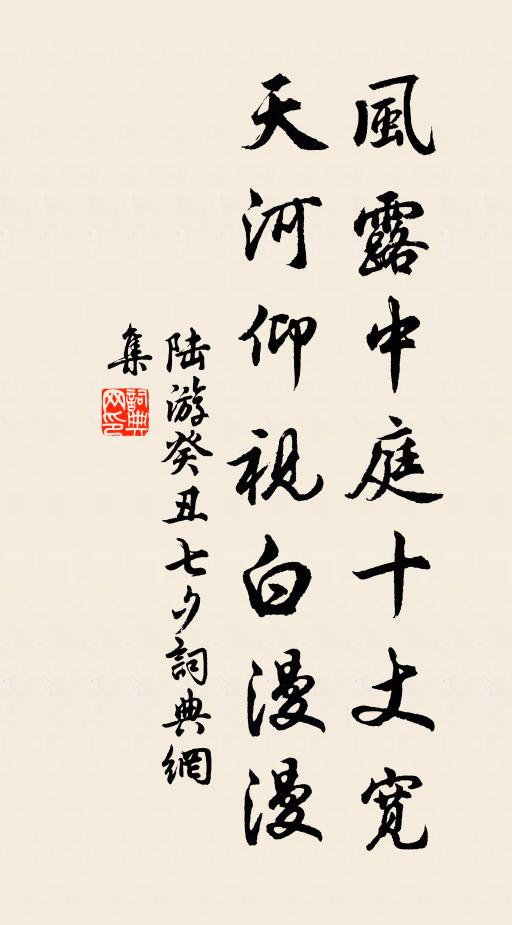 風露中庭十丈寬
天河仰視白漫漫
陸游癸丑七夕詞典網
集
詞典
网印